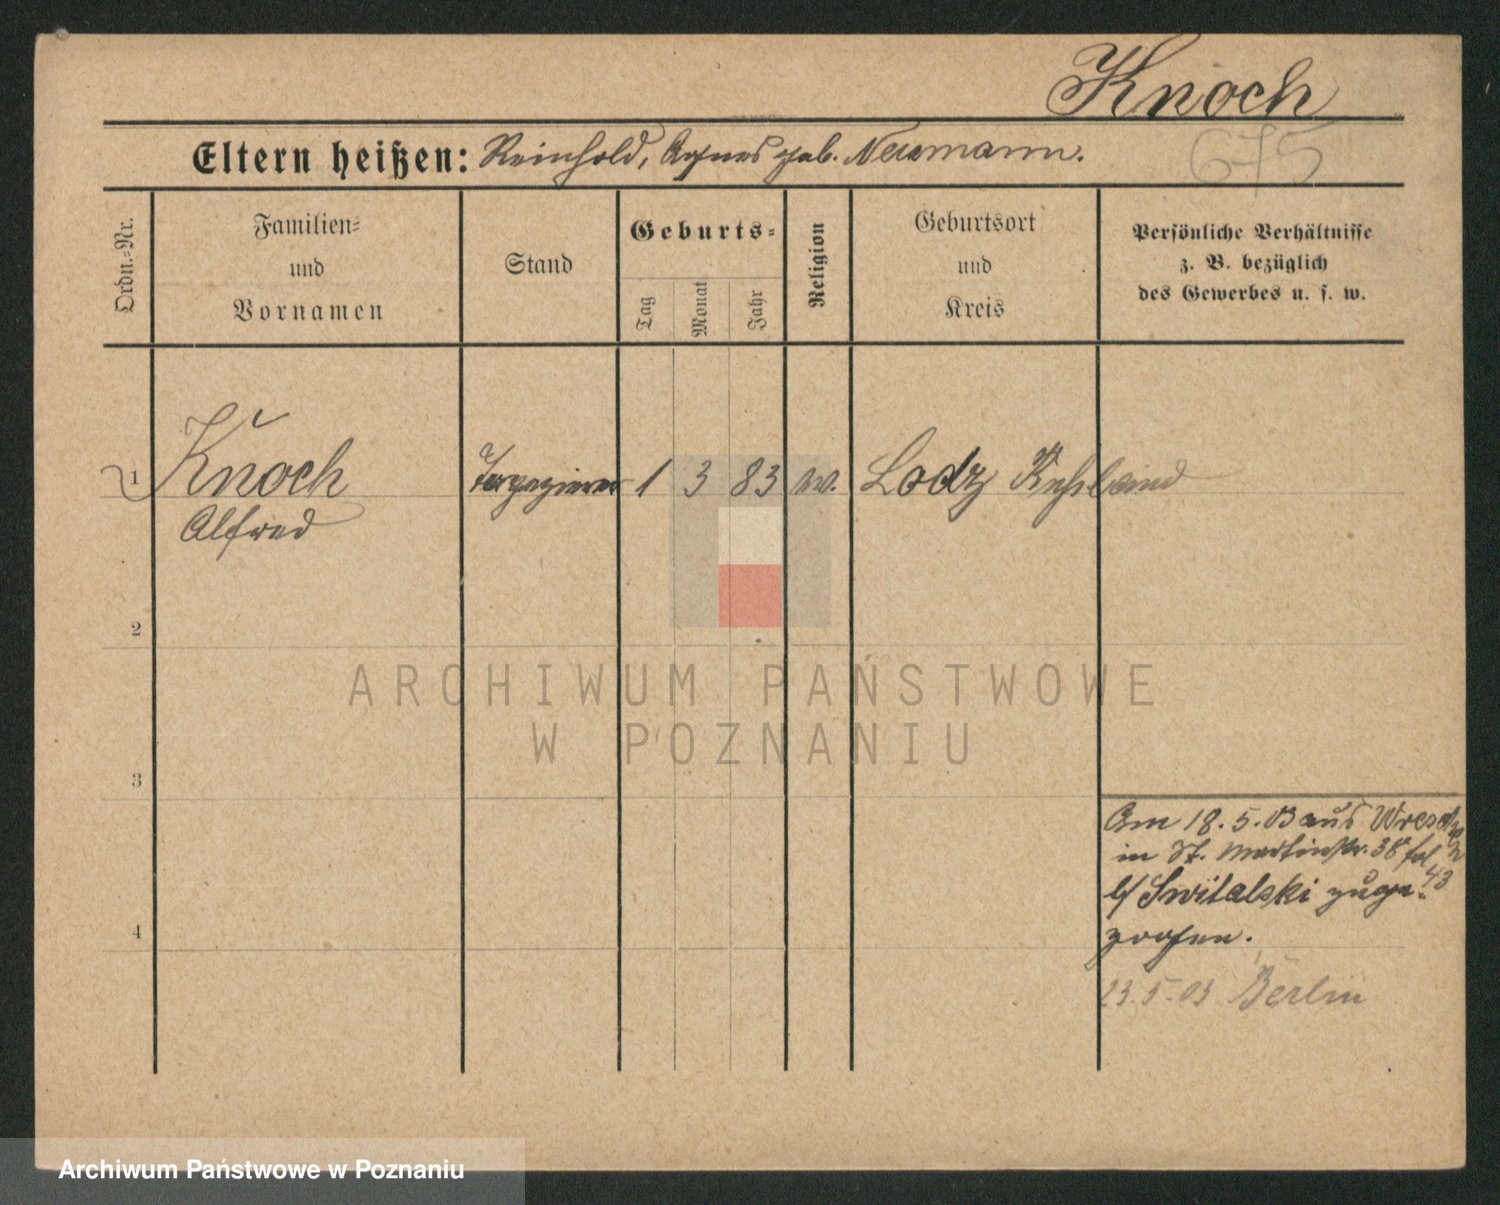 Knoch
675
Eltern heißen: Reinhold, Agnes geb. Neumann.
Ordn.-Nr.
Familien-
und
Vornamen
Stand
Geburts-
Tag
Monat
Jahr
Religion
Geburtsort
und
Kreis
Persönliche Verhältnisse
z. B. bezüglich
des Gewerbes u. s. w.
1 Knoch Tapezierer 1 3 83 ev. Lodz Rußland
Alfred
2
3
4
Am 18.5.03 aus Wreschen
in St. Martinstr. 38 fol
43
b/ Switalski zuge-
zogen.
23.5.03 Berlin
ARCHIWUM PAŃSTWOWE
W POZNANIU
Archiwum Państwowe w Poznaniu